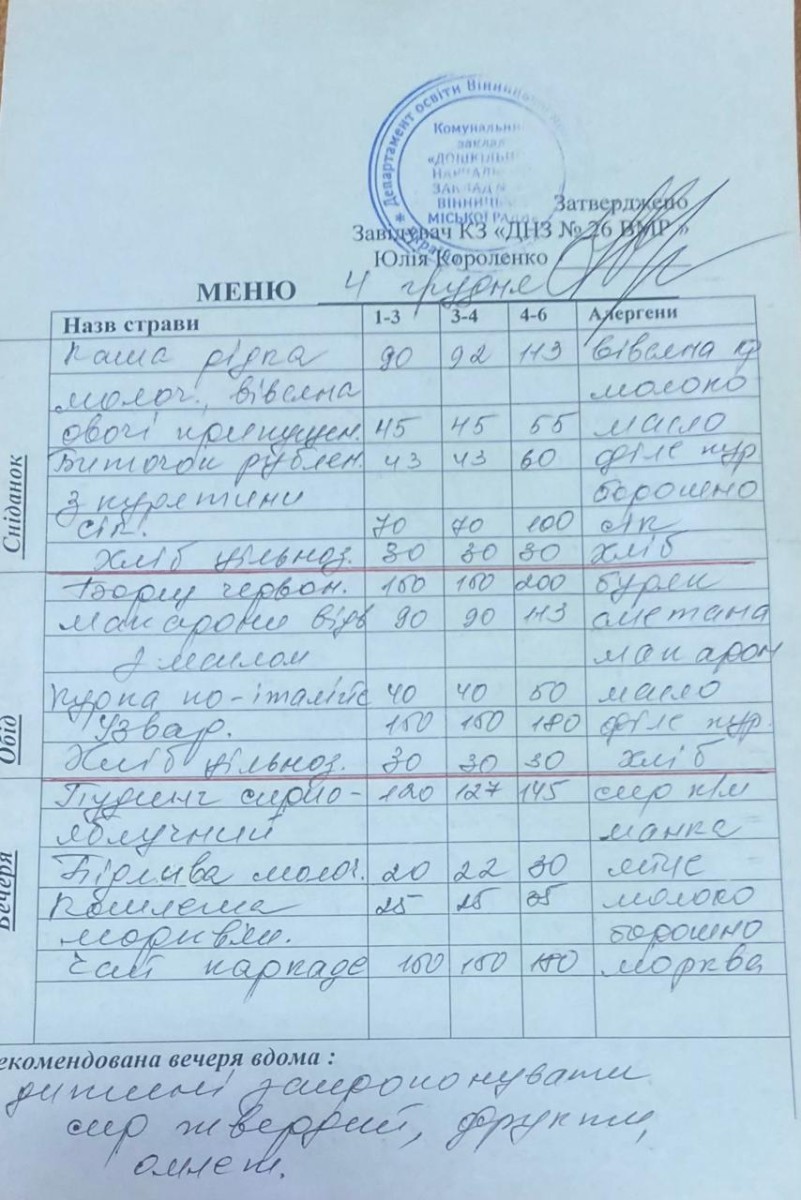 Департамент освіти Вінниц
Комунальни
заклад
«ДОШКІЛЬН
НАВЧАЛЬ
ЗАКЛАД №
ВІННИЦ
МІСЬКОЇ РАДИ
Затверджено
Завідувач КЗ «ДНЗ № 26 ВМР »
Юлія Короленко
МЕНЮ 4 грудня
Назв страви 1-3 3-4 4-6 Алергени
Сніданок
Каша рідка 90 92 113 вівсяна кр
молоч., вівсяна молоко
овочі припущен. 45 45 55 масло
Биточки рублен. 43 43 60 філе кур
з курятини борошно
сік. 70 70 100 сік
Хліб цільноз. 30 30 30 хліб
Обід
Борщ червон. 150 150 200 буряк
макарони відв 90 90 113 сметана
з маслом макарон
Курка по-італійс 40 40 50 масло
Узвар. 150 150 180 філе кур.
Хліб цільноз. 30 30 30 хліб
Вечеря
Пудинг сирно- 120 127 145 сир к/м
яблучний манка
Підлива молоч. 20 22 30 яйце
Котлета 25 25 35 молоко
моркв'ян. борошно
Чай каркаде 150 150 180 морква
екомендована вечеря вдома :
дитині запропонувати
сир твердий, фрукти,
омлет.